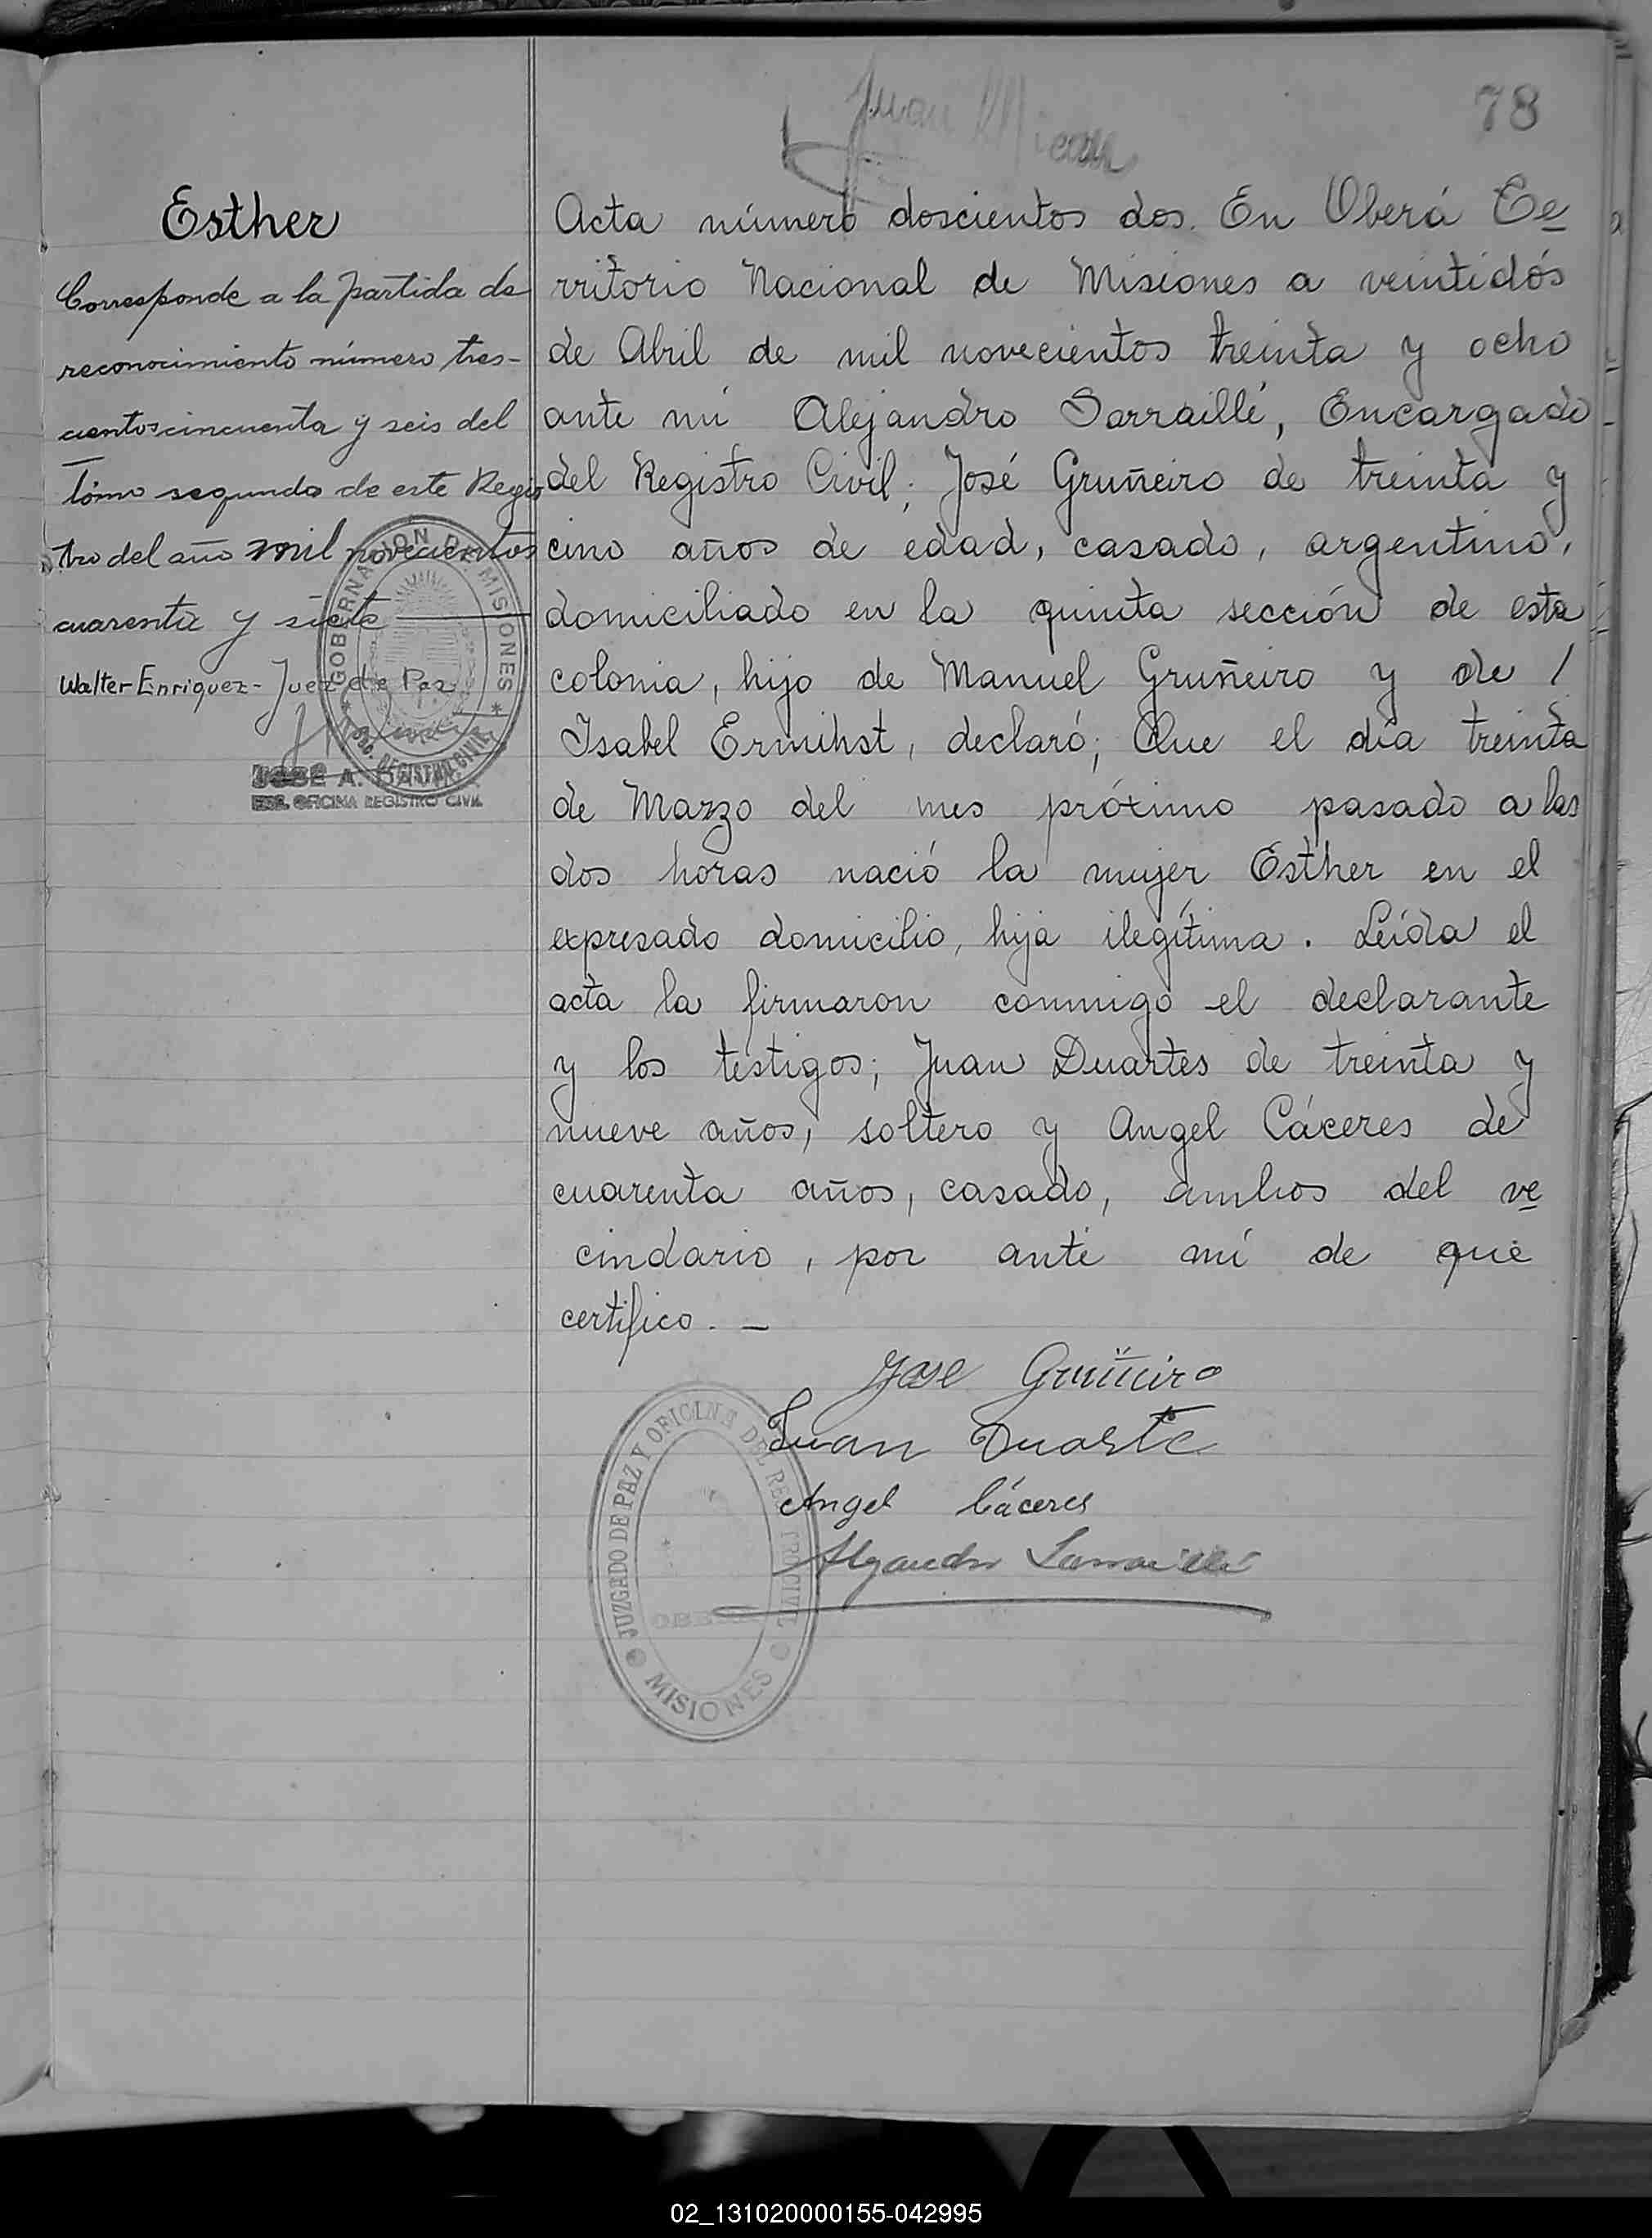 78
Juan
Esther
Corresponde a la partida de
reconocimiento número tres-
cientos cincuenta y seis del
Tómo segundo de este Regis
tro del año mil novecientos
cuarenta y siete
Walter Enriquez - Juez de Paz
GOBERNACION DE MISIONES
REGISTRO CIVIL
JOSE A.
OFICINA REGISTRO CIVIL
Acta número doscientos dos. En Oberá Te
rritorio Nacional de Misiones a veintidós
de Abril de mil novecientos treinta y ocho
ante mí Alejandro Sarraillé, Encargado
del Registro Civil; José Gruñeiro de treinta y
cino años de edad, casado, argentino,
domiciliado en la quinta sección de esta
colonia, hijo de Manuel Gruñeiro y de /
Isabel Ermihst, declaró; Que el día treinta
de Marzo del mes próximo pasado a las
dos horas nació la mujer Esther en el
expresado domicilio, hija ilegítima. Leída el
acta la firmaron conmigo el declarante
y los testigos; Juan Duartes de treinta y
nueve años, soltero y Angel Cáceres de
cuarenta años, casado, ambos del ve
cindario, por ante mí de que
certifico. —
Jose Gruñeiro
Juan Duarte
Angel Cáceres
Alejandro Sarraillé
JUZGADO DE PAZ Y OFICINA DEL REGISTRO CIVIL
OBERÁ
MISIONES
02_131020000155-042995